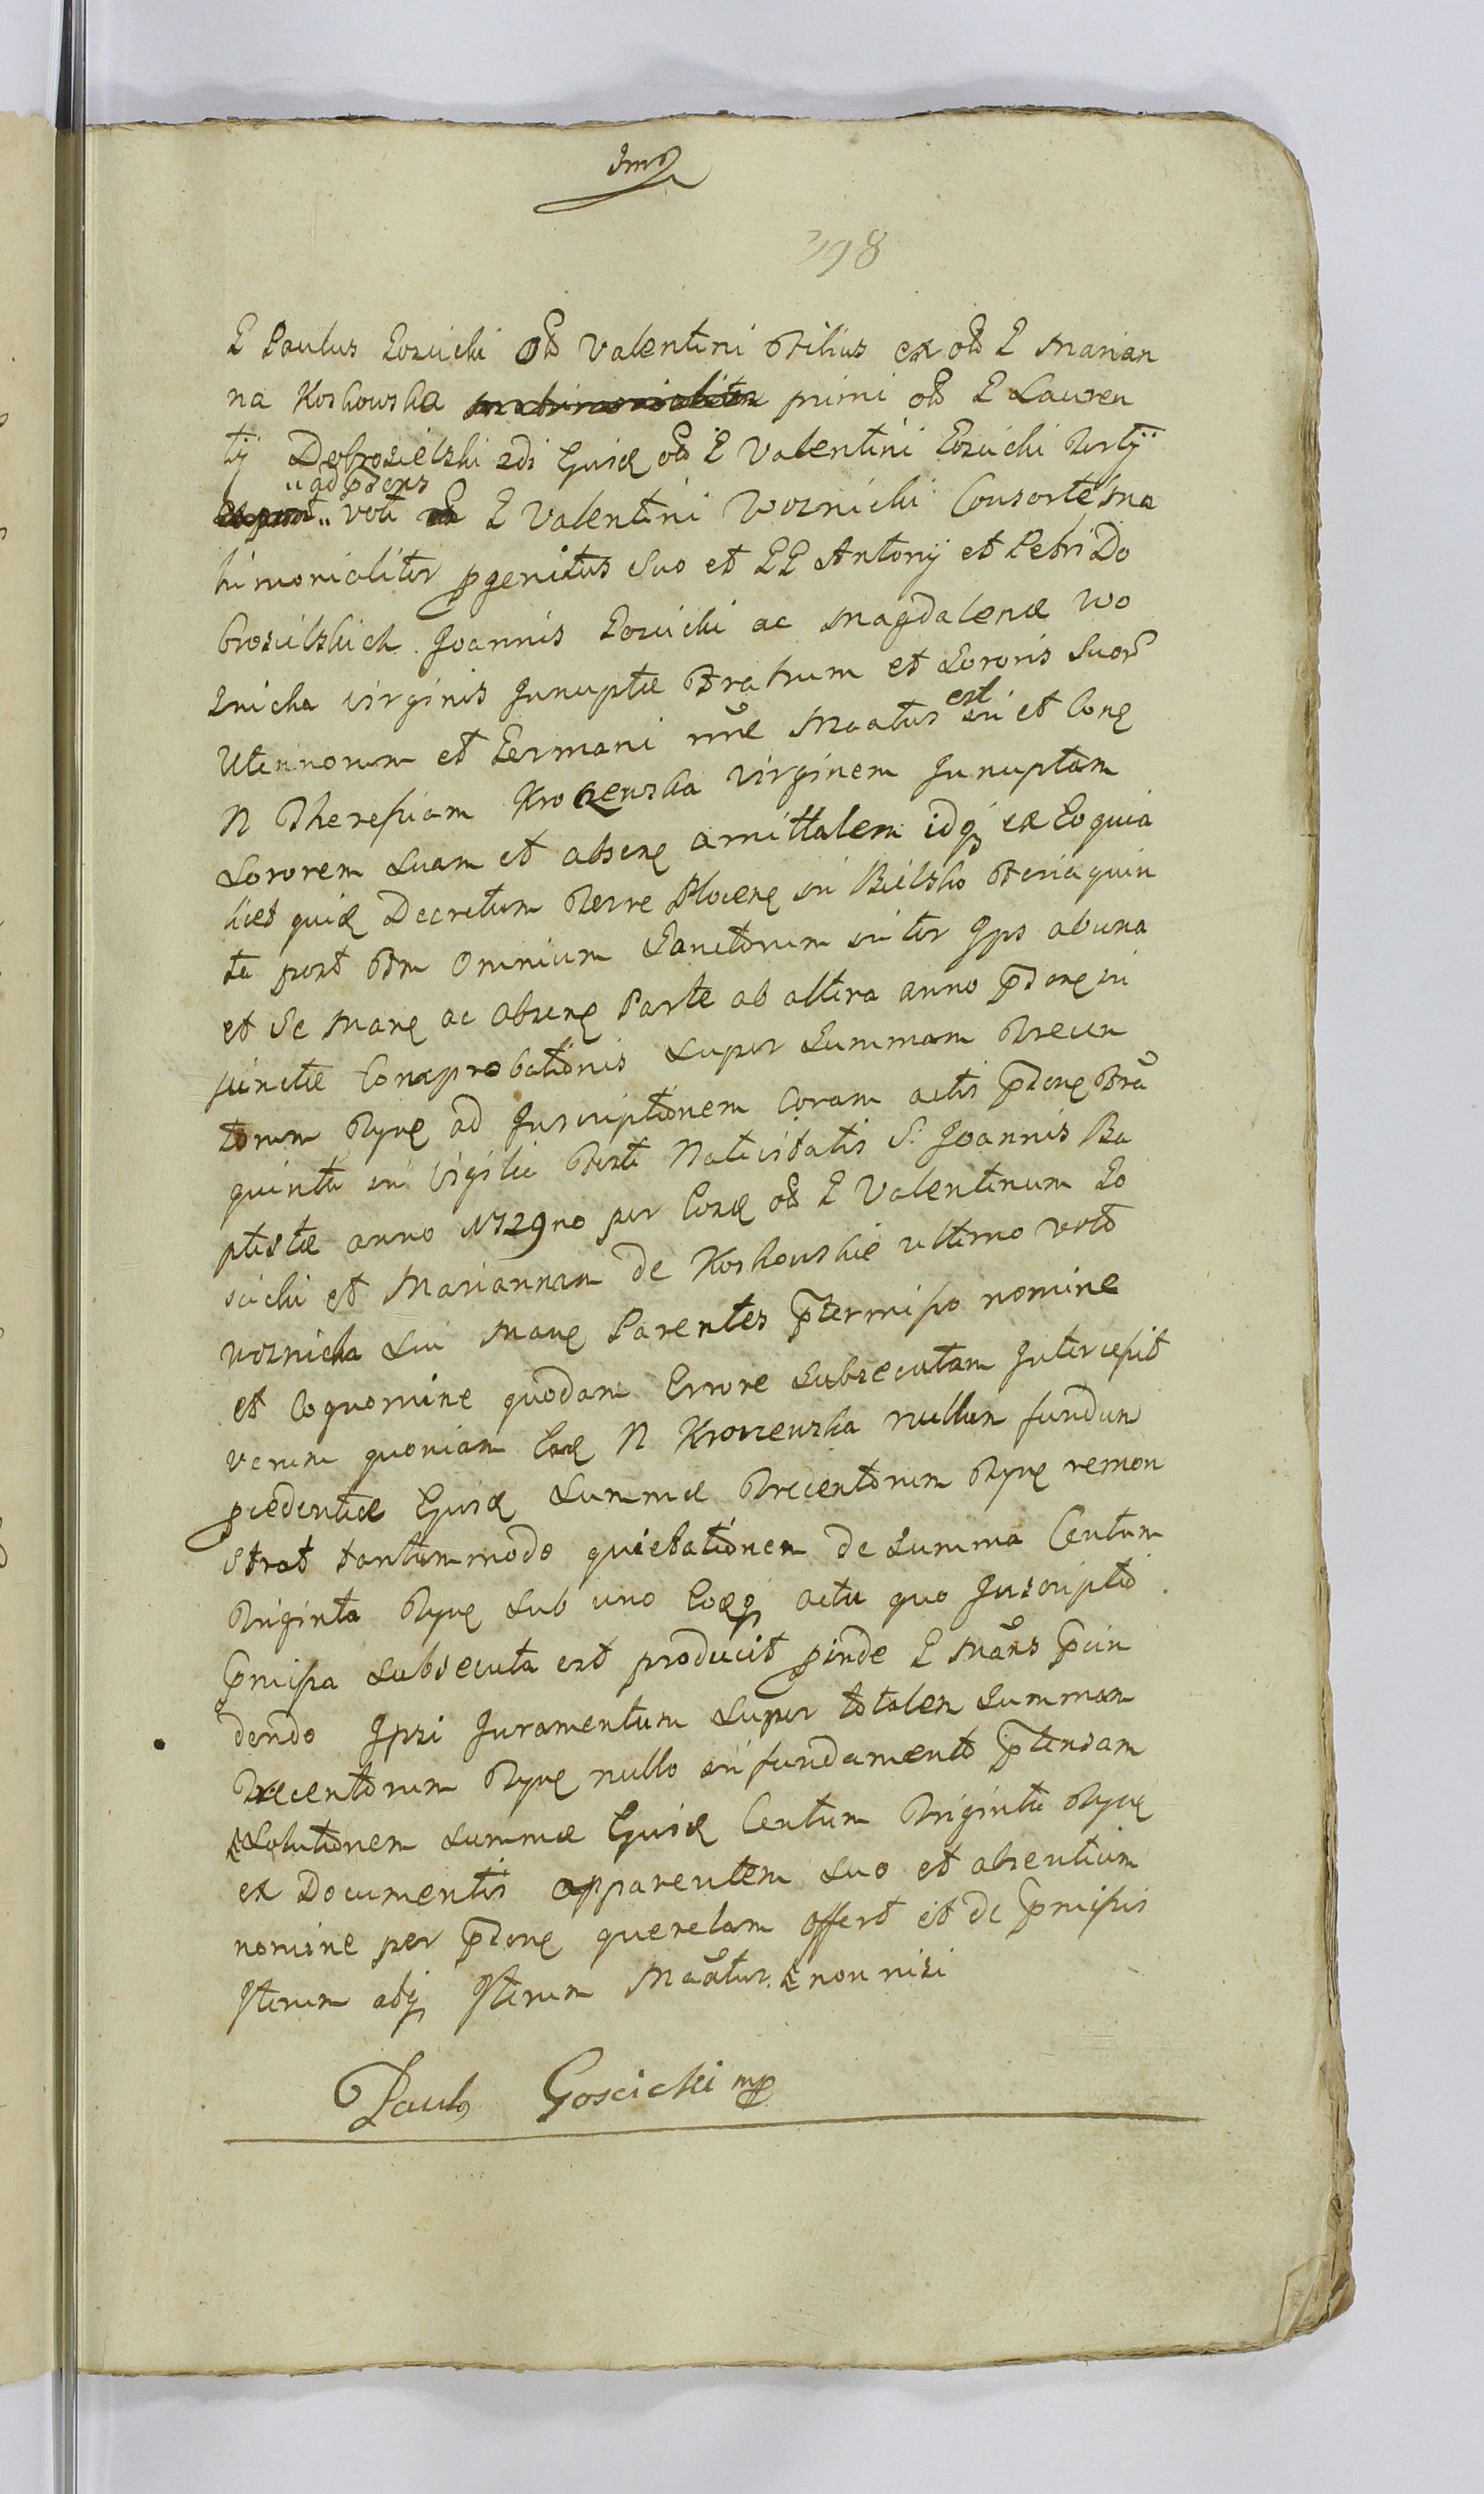 398
G Paulus Goscicki olim Valentini Filius ex olim G Marian
na Koskowska matrimonialiter primi olim G Lauren
tij Dobrosielski 2di Ejusd olim G Valentini Goscicki Tertij
ad pdens
voti G Valentini Woznicki Consorte Ma
trimonialiter pgenitus Suo et GG Antonij et Petri Do
brosielskich Joannis Goscicki ac Magdalenæ Wo
znicka virginis Junuptæ Fratrum et Sororis Suor
Uterinorum et Germani nne Maatus est in et Cong
N Theresiam Virginem Junuptam
Sororem Suam et abseng amittalem idq ex Eo quia
licet quid Decretum Terre Ploceng in Bielsko Feria quin
ta post Ftm Omnium Sanctorum inter Jps ab una
et Se Mang ac Abseng Parte ab altera anno pdong in
junctæ Comprobationis Super Summam Trecen
torum Typg ad Juscriptionem Coram actis pdong Fria
quinta in Vigilia Festi Nativitatis S: Joannis Ba
ptistæ anno 1729no per Eosd olim G Valentinum Go
scicki et Mariannam de Koskowskie ultimo voto
Woznicka Sui Mang Parentes ptermisso nomine
et Cognomine quodam Errore Subsecutam Intercessit
verum quoniam Ead N nullum fundum
pcedentiæ Ejusd Summæ Trecentorum Typg remon
strat tantummodo quietationem de Summa Centum
Triginta Typg Sub uno Eodq actu quo Juscriptio
pmissa Subsecuta est producit pinde G Mans pcin
dendo Jpsi Juramentum Super totalem Summam
Trecentorum Typg nullo in fundamento ptensam
Solutionem Summæ Ejusd Centum Triginta Typg
ex Documentis apparentem Suo et absentium
nomine per pdong querelam offert et de pmissis
Iterum atq Iterum Maatur non nisi
Paulus Goscicki mp